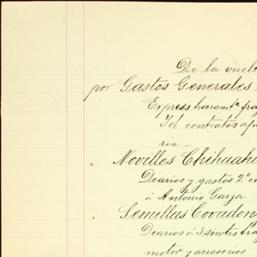 De la vuelt
por Gastos Generales
Express herramta fra
Id contratos afu
ria
Novillos Chihuahu
Diarios y gastos 2º en
á Antonio Garza
Semillas Covadon
Diarios á 3 sintestra
motor y accesorios